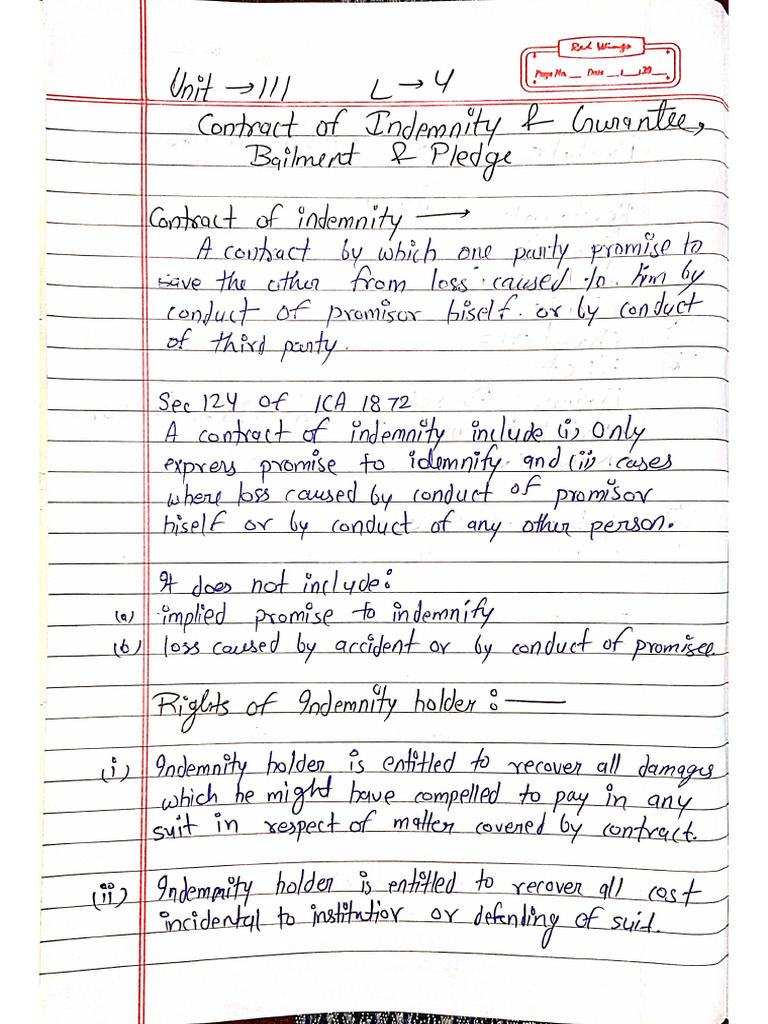 Red Wings
Page No. __ Date __/__/20__
Unit → III L → 4
Contract of Indemnity & Gurantee,
Bailment & Pledge
Contract of indemnity →
A contract by which one party promise to
save the other from loss caused to him by
conduct of promisor hiself or by conduct
of third party.
Sec 124 of ICA 1872
A contract of indemnity include (i) Only
express promise to idemnify and (ii) cases
where loss caused by conduct of promisor
hiself or by conduct of any other person.
It does not include:
(a) implied promise to indemnify
(b) loss caused by accident or by conduct of promisee.
Rights of Indemnity holder :—
(i) Indemnity holder is entitled to recover all damages
which he might have compelled to pay in any
suit in respect of matter covered by contract.
(ii) Indemnity holder is entitled to recover all cost
incidental to institution or defending of suit.